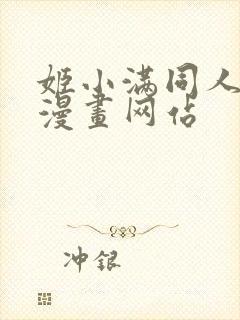 姬小满同人
漫畫网站
冲银